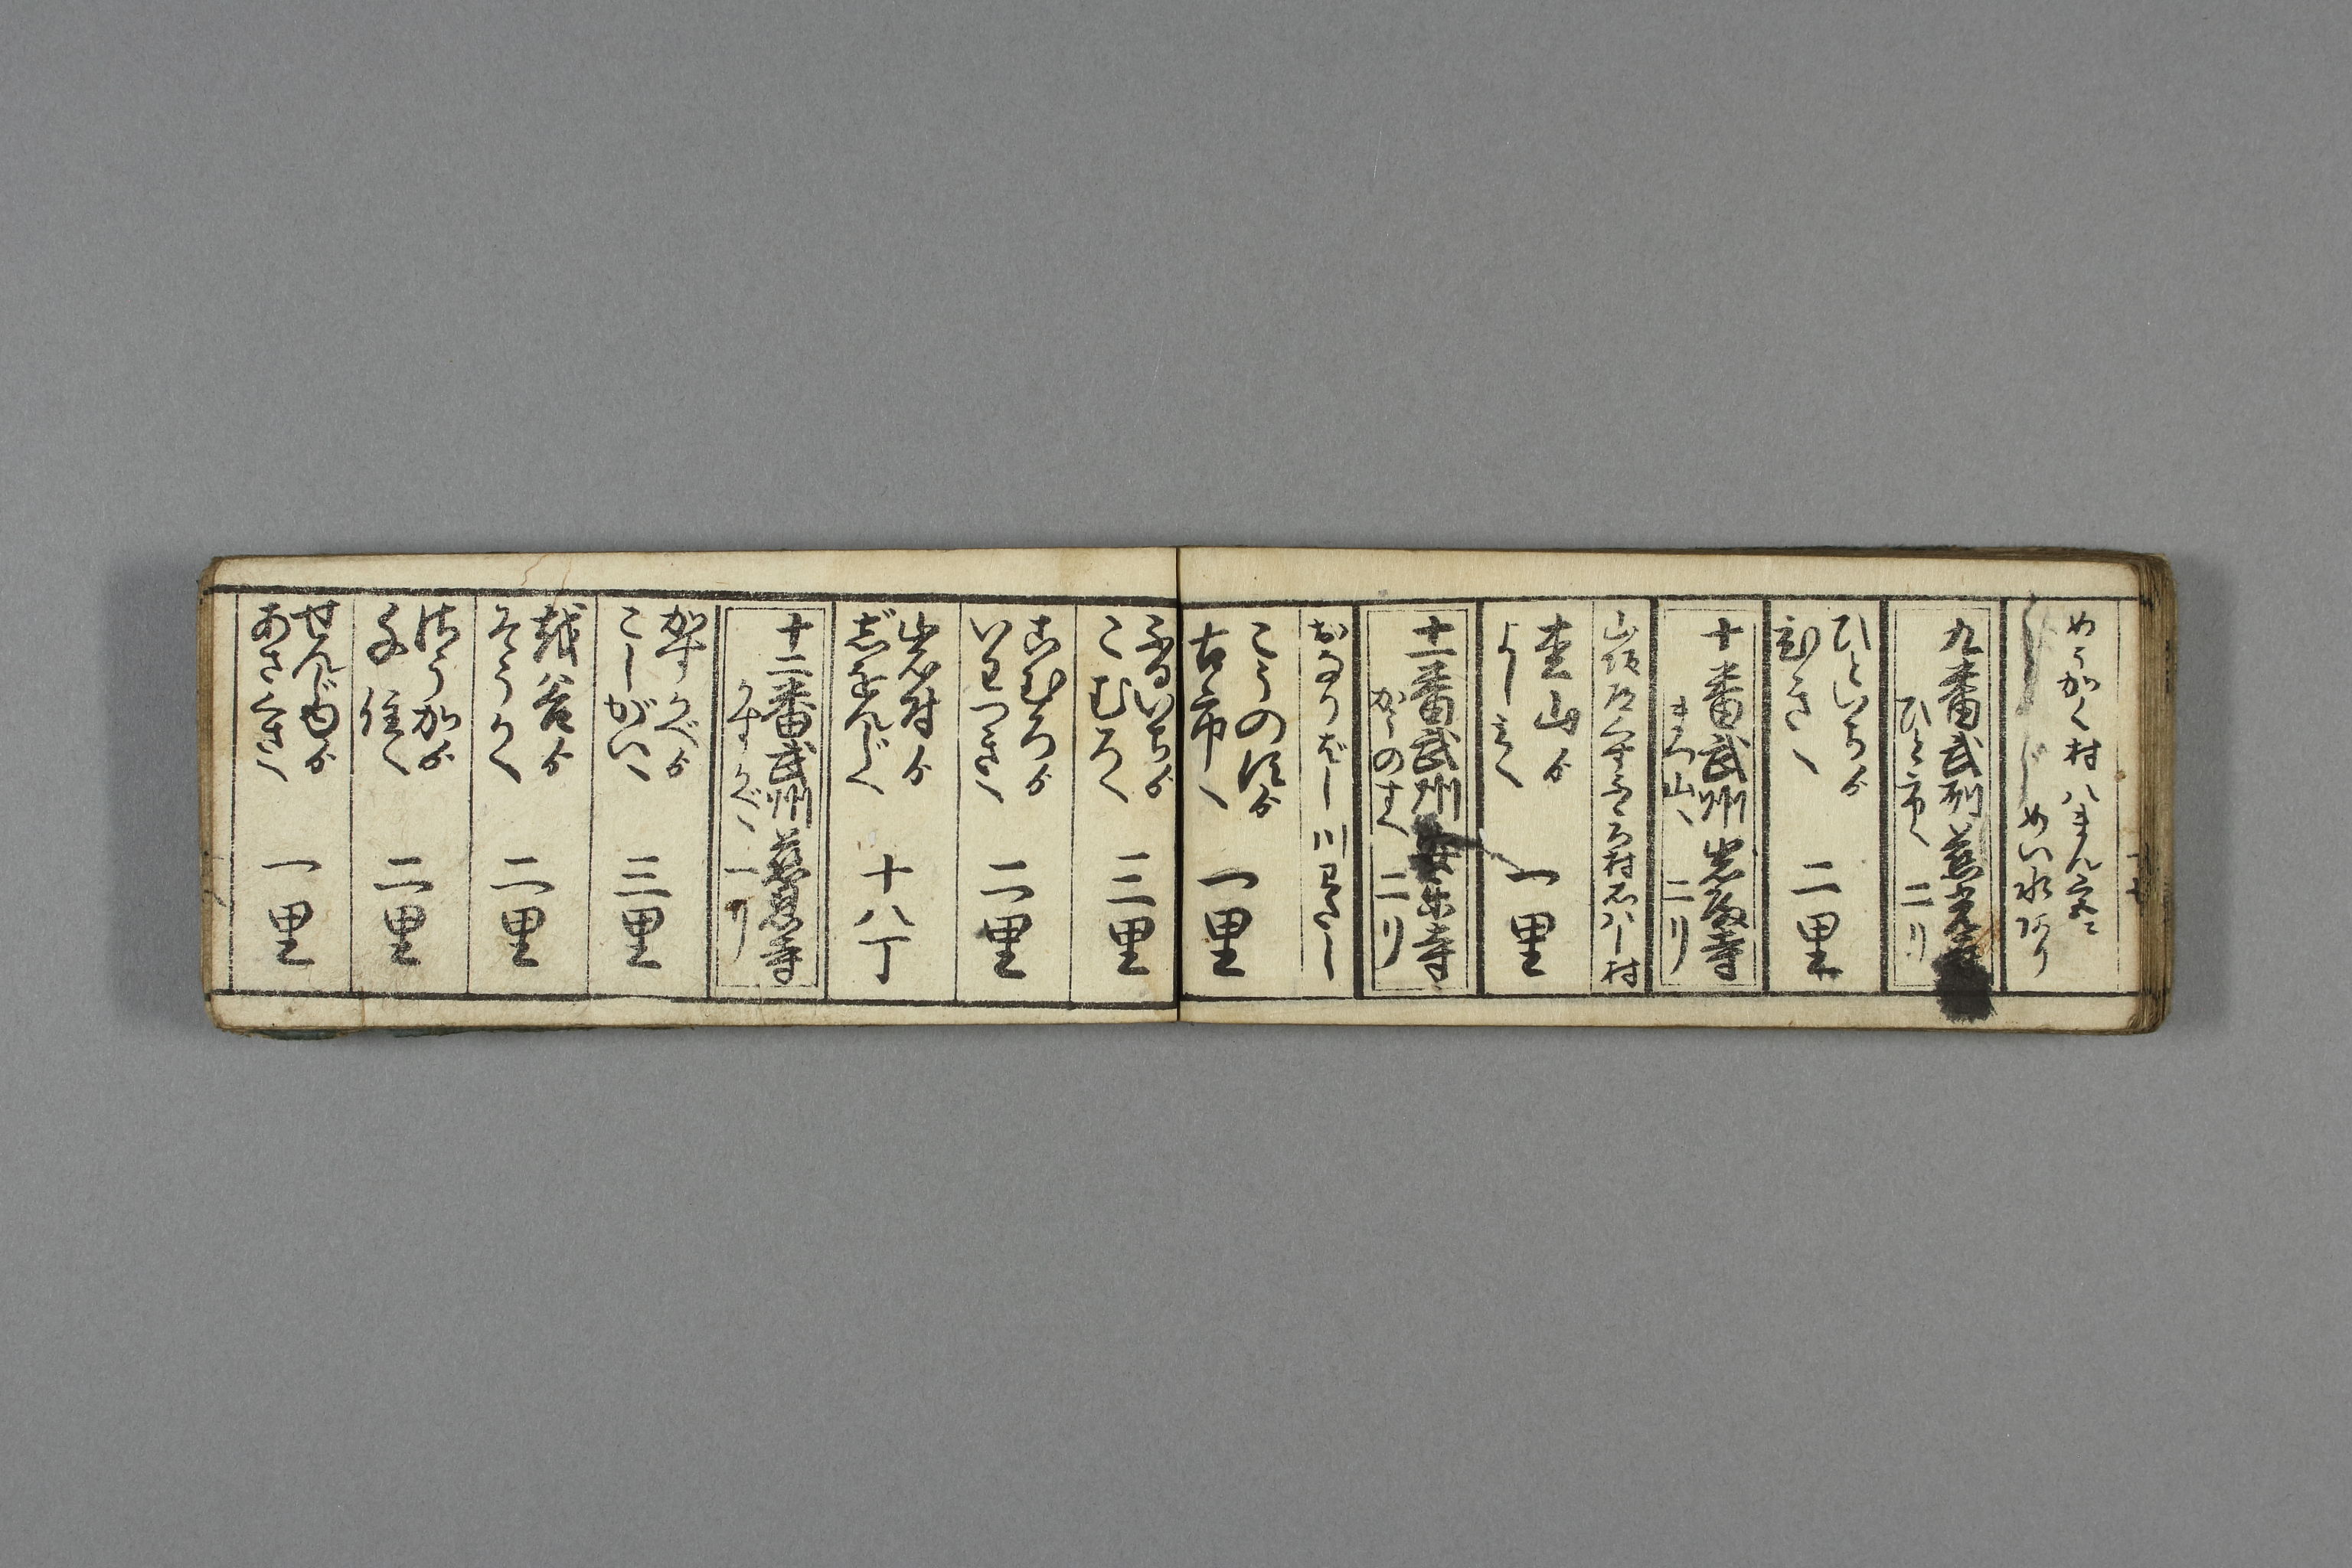 めうかく村八まん宮ニ
めい水有り
九番武州慈光寺
ひと市へ 二リ
ひといちゟ
むさしへ 二里
十番武州岩殿寺
まつ山へ 二リ
山
村石ハし村
松山ゟ
よしみへ 一里
十一番武州安楽寺
かうのすへ 二リ
おなりばし川わたし
こうのすゟ
古市へ 一里
ふるいちゟ
こむろへ 三里
こむろゟ
いわつきへ 二里
岩付ゟ
じをんじへ 十八丁
十二番武州慈恩寺
かすかべへ 一リ
かすかべゟ
こしがいへ 三里
越谷ゟ
そうかへ 二里
そうかゟ
千住へ 二里
せんじゆゟ
あさくさへ 一里